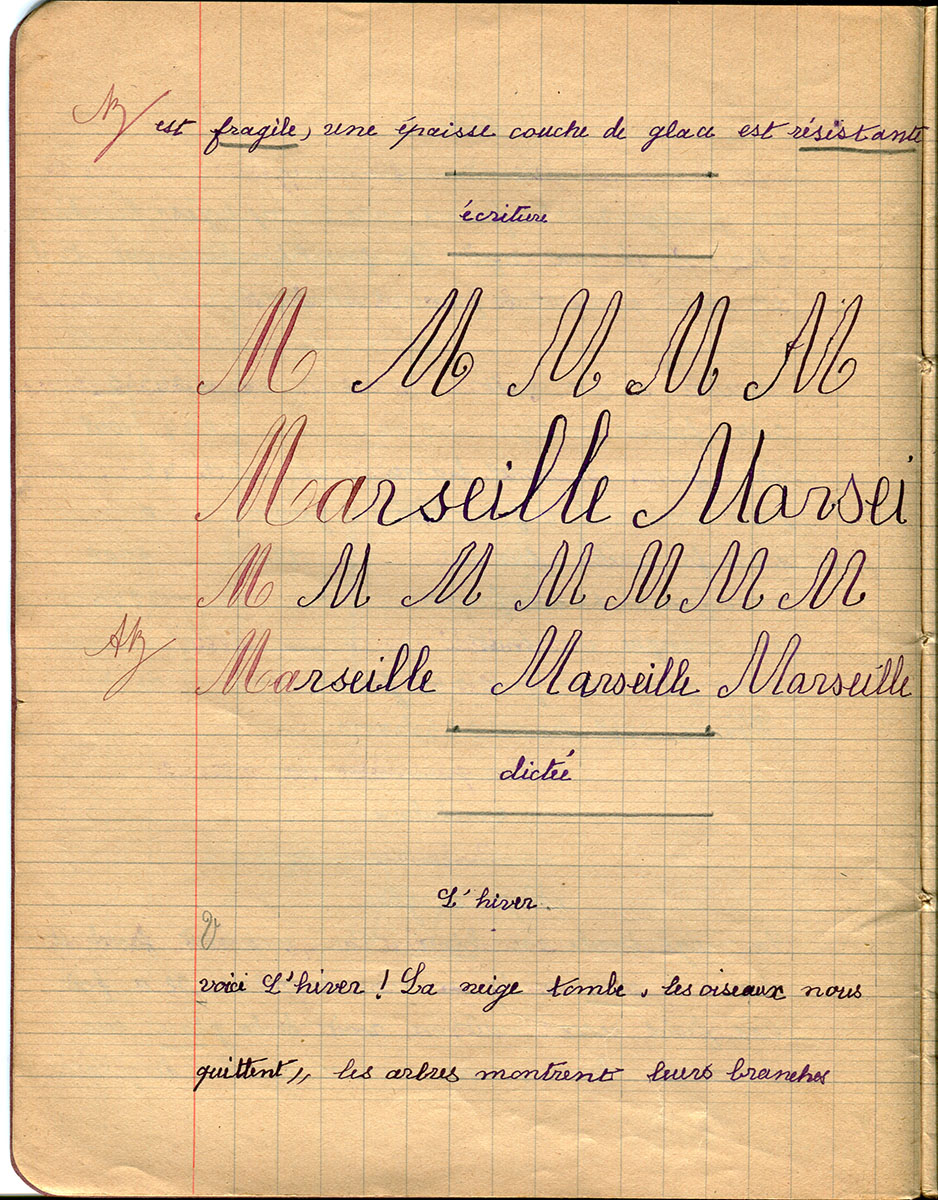 est fragile, une épaisse couche de glace est résistante
écriture
M M M M M
Marseille Marsei
M M M M M M M
Marseille Marseille Marseille
dictée
L'hiver.
V
voici L'hiver ! La neige tombe, les oiseaux nous
quittent,, les arbres montrent leurs branches